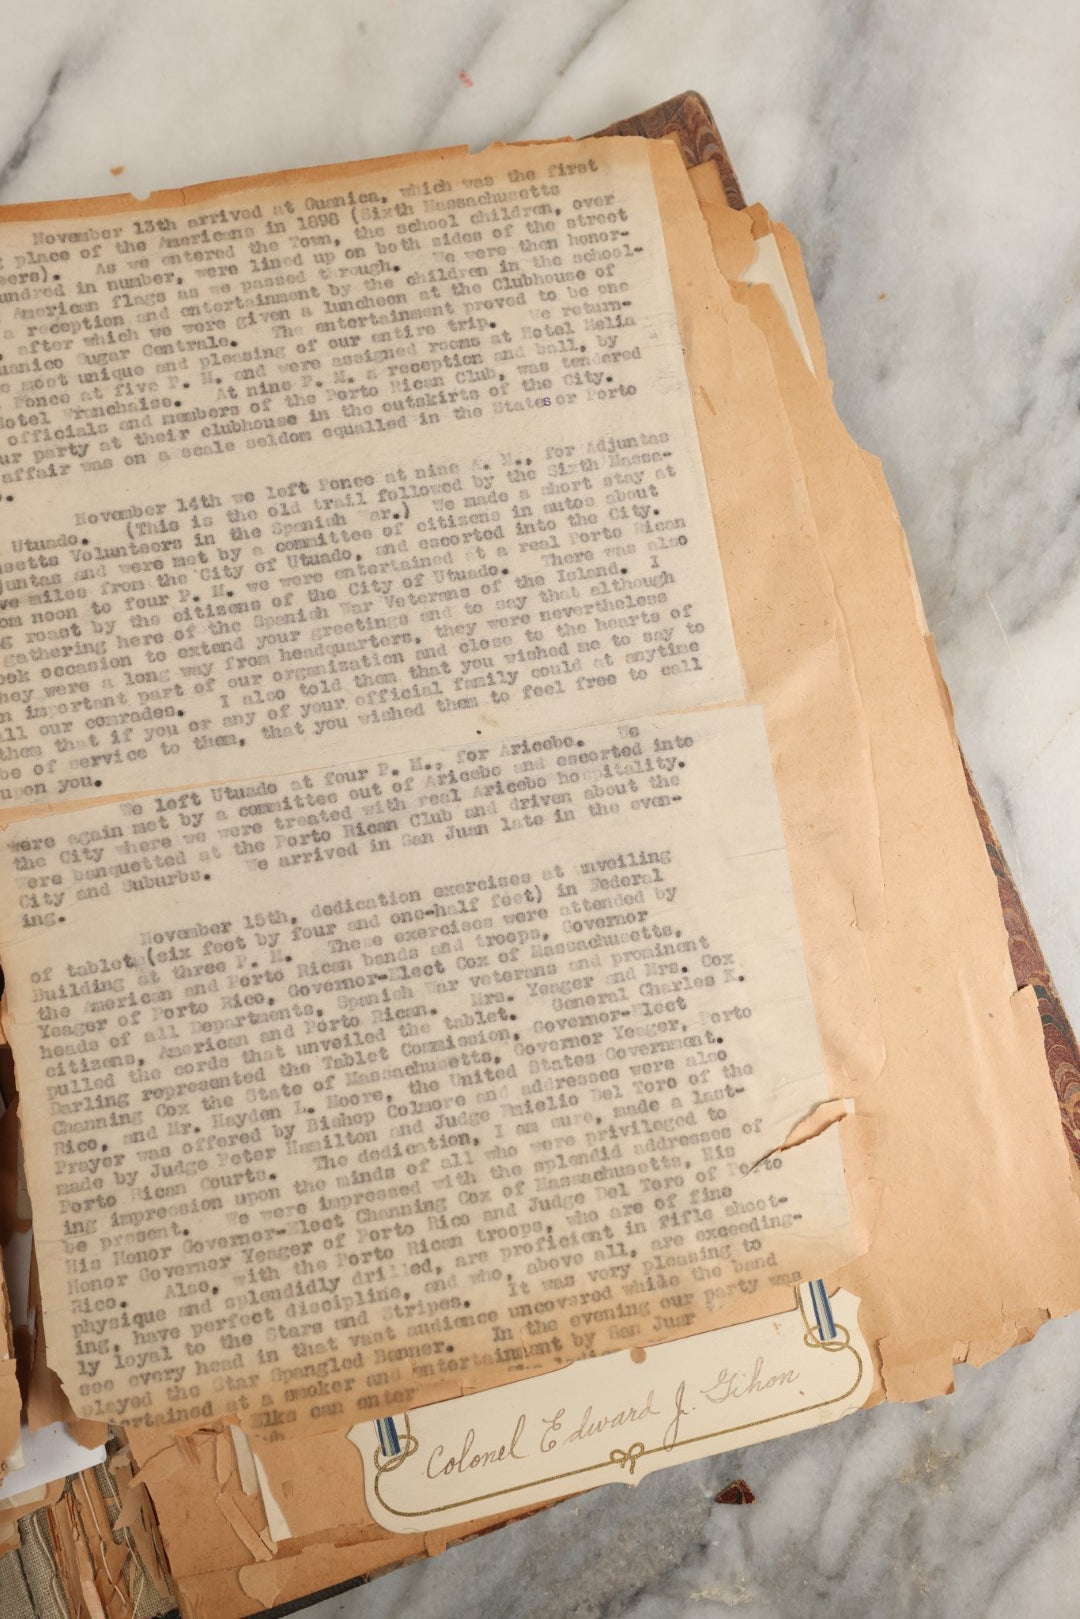 November 13th arrived at Guanica, which was the first
place of the Americans in 1898 (Sixth Massachusetts
eers). As we entered the Town, the school children, over
undred in number, were lined up on both sides of the street
American flags as we passed through. We were then honor-
a reception and entertainment by the children in the school-
, after which we were given a luncheon at the Clubhouse of
uanica Sugar Centrale. The entertainment proved to be one
most unique and pleasing of our entire trip. We return-
Ponce at five P. M. and were assigned rooms at Hotel Melia
otel Franchaise. At nine P. M. a reception and ball, by
officials and members of the Porto Rican Club, was tendered
ur party at their clubhouse in the outskirts of the City.
affair was on a scale seldom equalled in the States or Porto
.
November 14th we left Ponce at nine A. M., for Adjuntas
Utuado. (This is the old trail followed by the Sixth Massa-
setts Volunteers in the Spanish War.) We made a short stay at
juntas and were met by a committee of citizens in autos about
ve miles from the City of Utuado, and escorted into the City.
om noon to four P. M. we were entertained at a real Porto Rican
g roast by the citizens of the City of Utuado. There was also
gathering here of the Spanish War Veterans of the Island. I
ook occasion to extend your greetings and to say that although
hey were a long way from headquarters, they were nevertheless
n important part of our organization and close to the hearts of
ll our comrades. I also told them that you wished me to say to
them that if you or any of your official family could at anytime
be of service to them, that you wished them to feel free to call
upon you.
We left Utuado at four P. M., for Aricebo. We
were again met by a committee out of Aricebo and escorted into
the City where we were treated with real Aricebo hospitality.
Were banquetted at the Porto Rican Club and driven about the
City and Suburbs. We arrived in San Juan late in the even-
ing.
November 15th, dedication exercises at unveiling
of tablet (six feet by four and one-half feet) in Federal
Building at three P. M. These exercises were attended by
the American and Porto Rican bands and troops, Governor
Yeager of Porto Rico, Governor-Elect Cox of Massachusetts,
heads of all Departments, Spanish War veterans and prominent
citizens, American and Porto Rican. Mrs. Yeager and Mrs. Cox
pulled the cords that unveiled the tablet. General Charles K.
Darling represented the Tablet Commission, Governor-Elect
Channing Cox the State of Massachusetts, Governor Yeager, Porto
Rico, and Mr. Hayden L. Moore, the United States Government.
Prayer was offered by Bishop Colmore and addresses were also
made by Judge Peter Hamilton and Judge Emielio Del Toro of the
Porto Rican Courts. The dedication, I am sure, made a last-
ing impression upon the minds of all who were privileged to
be present. We were impressed with the splendid addresses of
His Honor Governor-Elect Channing Cox of Massachusetts, His
Honor Governor Yeager of Porto Rico and Judge Del Toro of Porto
Rico. Also, with the Porto Rican troops, who are of fine
physique and splendidly drilled, are proficient in rifle shoot-
ing, have perfect discipline, and who, above all, are exceeding-
ly loyal to the Stars and Stripes. It was very pleasing to
see every head in that vast audience uncovered while the band
played the Star Spangled Banner. In the evening our party was
ertained at a smoker and entertainment by San Juan
Elks can enter
Colonel Edward J. Gihon